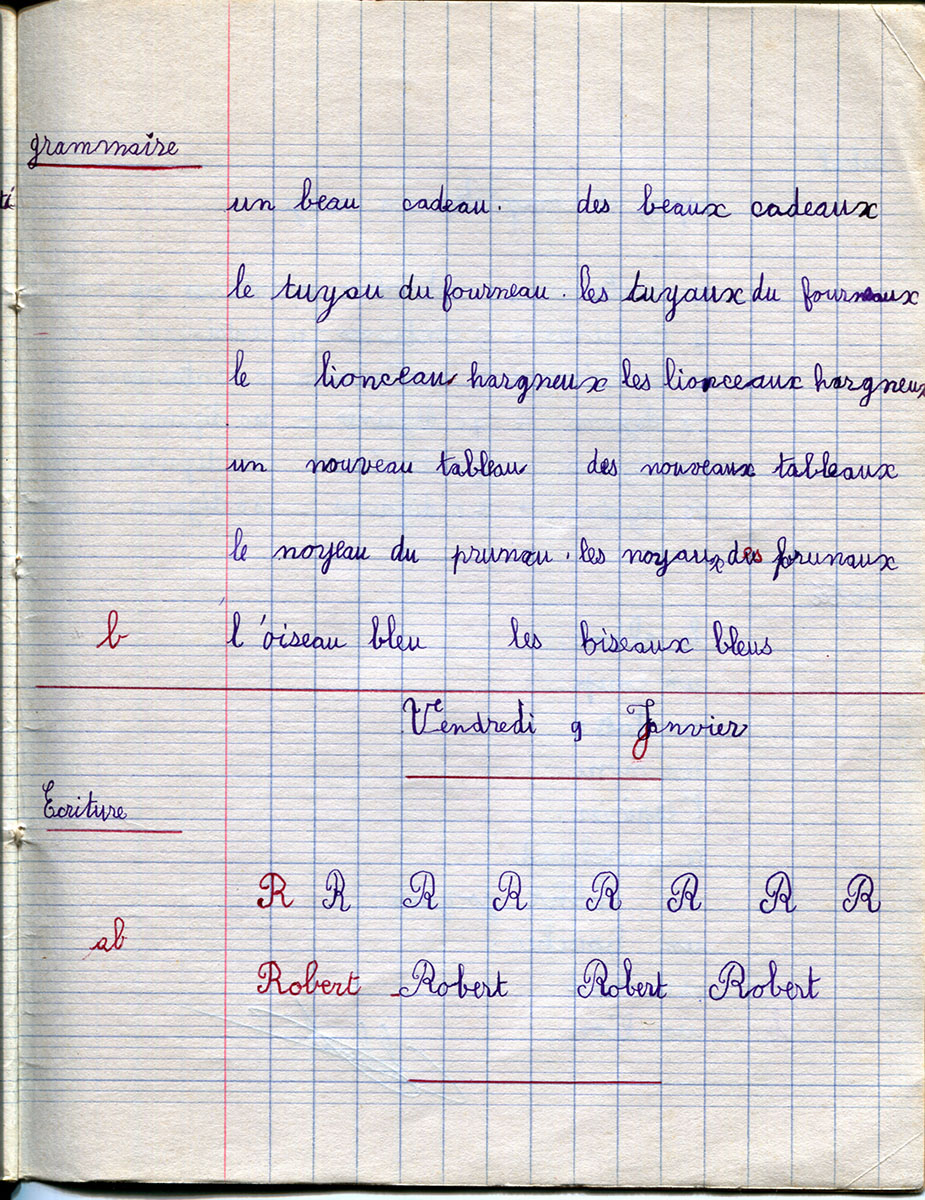 grammaire
un beau cadeau. des beaux cadeaux
le tuyau du fourneau. les tuyaux du fourneaux
le lionceau hargneux les lionceaux hargneux
un nouveau tableau des nouveaux tableaux
le noyeau du prunau. les noyaux des prunaux
b l'oiseau bleu les oiseaux bleus
Vendredi 9 Janvier
Ecriture
R R R R R R R R
ab
Robert Robert Robert Robert